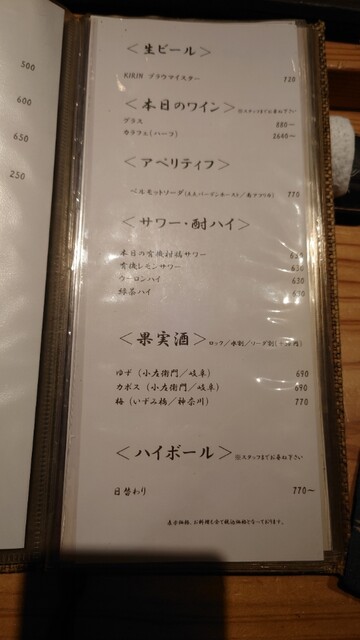 500
600
650
250
<生ビール>
KIRIN ブラウマイスター 720
<本日のワイン> ※スタッフまでお尋ね下さい
グラス 880~
カラフェ(ハーフ) 2640~
<アペリティフ>
ベルモットソーダ 770
<サワー・酎ハイ>
本日の有機柑橘サワー 630
有機レモンサワー 630
ウーロンハイ 630
緑茶ハイ 630
<果実酒> ロック/水割/ソーダ割
ゆず (小左衛門/岐阜) 690
カボス (小左衛門/岐阜) 690
梅 (いづみ橋/神奈川) 770
<ハイボール> ※スタッフまでお尋ね下さい
日替わり 770~
表示価格、お料理も全て税込価格となっております。